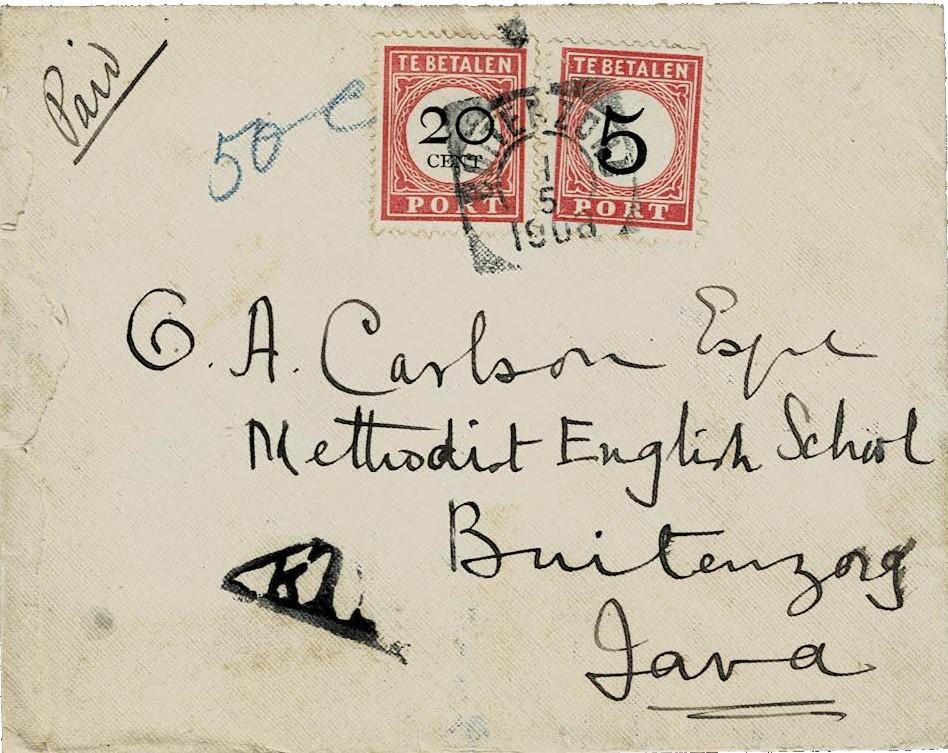 Paid
50 c
TE BETALEN
20
CENT
PORT
TE BETALEN
5
PORT
1
5
1908
G. A. Carlson Esqre
Methodist English School
Buitenzorg
Java